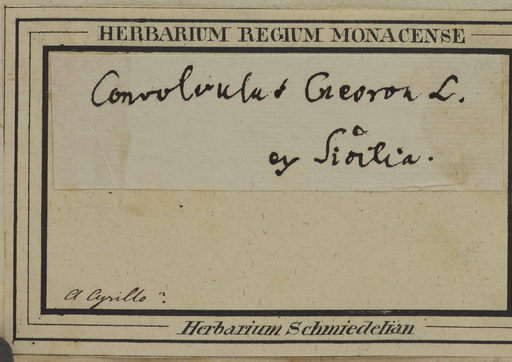 HERBARIUM REGIUM MONACENSE
Convolvulus Cneoron L.
ex Sicilia.
A Cyrillo?
Herbarium Schmiedelian